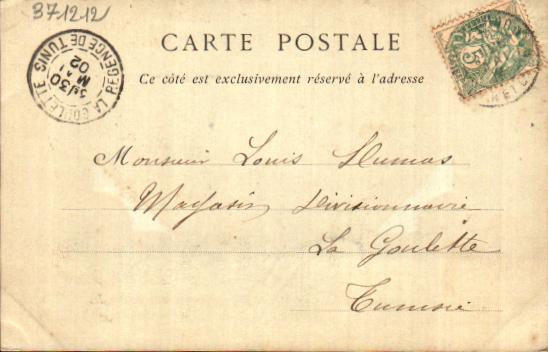 37.12.12
CARTE POSTALE
Ce côté est exclusivement réservé à l'adresse
LA GOULETTE RÉGENCE DE TUNIS
30
MAI
02
Monsieur Louis Dumas
Magasin Divisionnaire
La Goulette
Tunisie